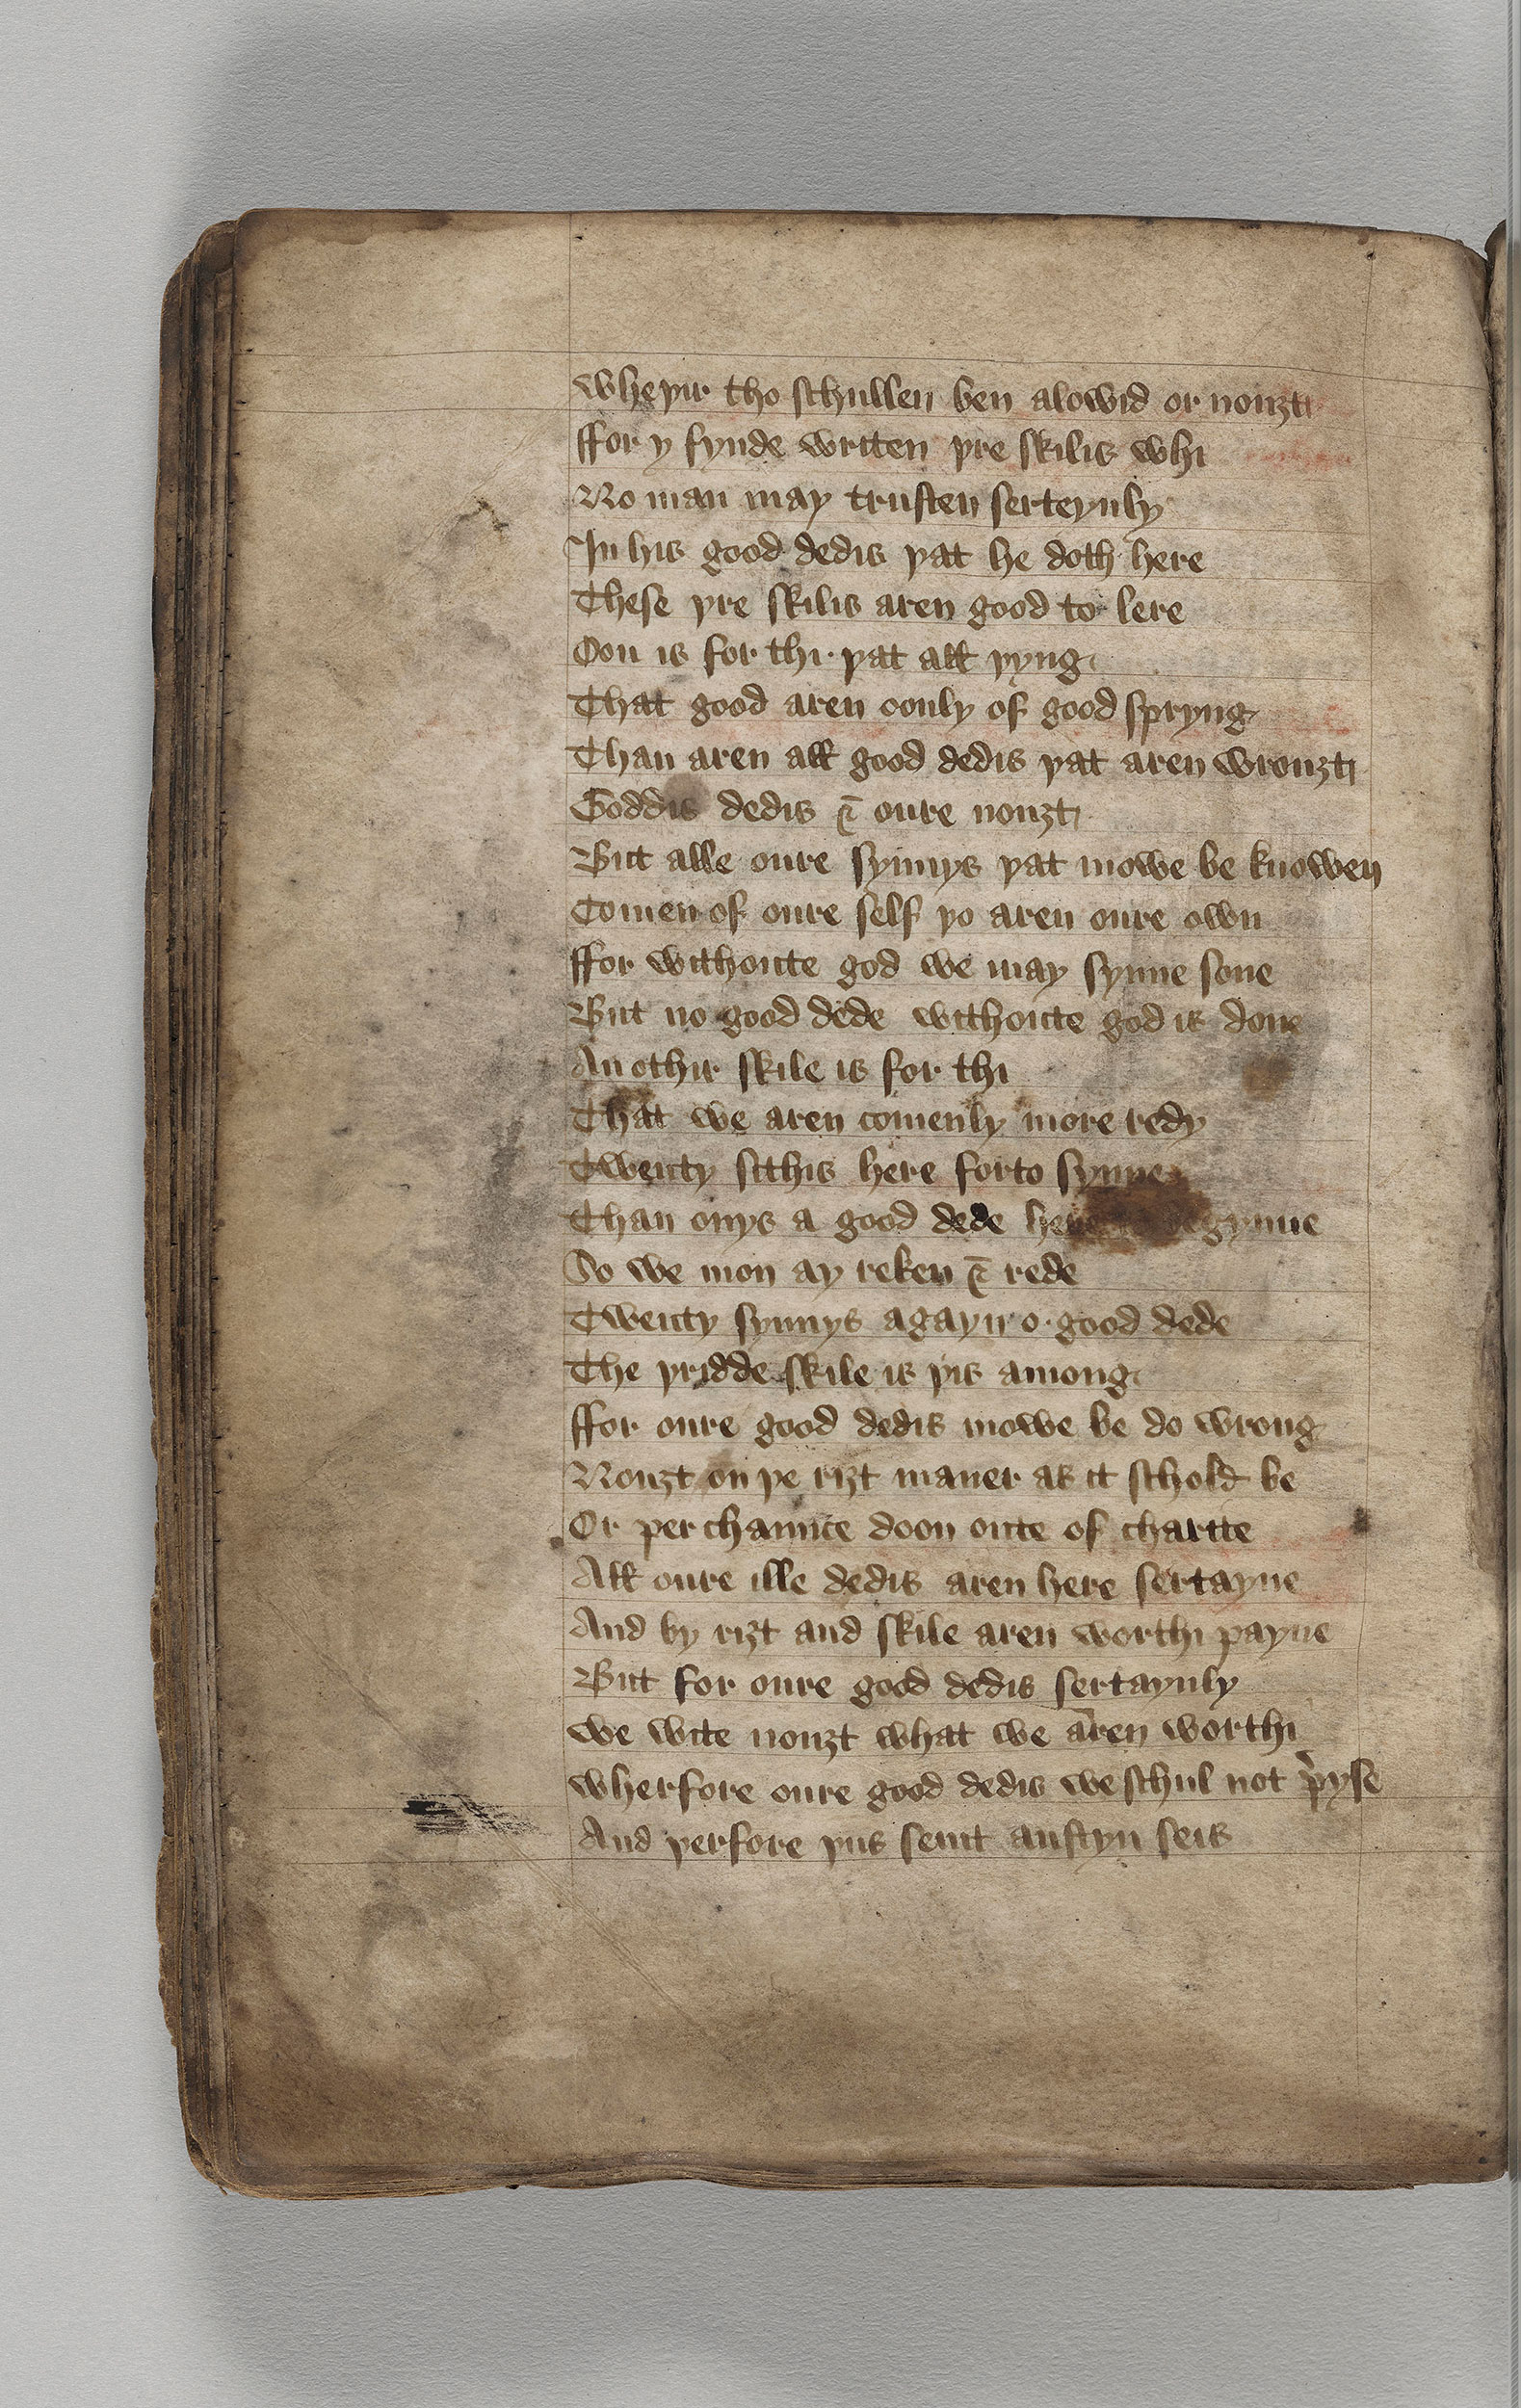 Wheþir tho schullen ben alowid or nouȝt
ffor y fynde writen þre skilis whi
No man may trusten serteynly
In his good dedis þat he doth here
These þre skilis aren good to lere
Oon is for thi þat all þyng
That good aren oonly of good spryng
Than aren all good dedis þat aren wrouȝt
Goddis dedis & oure nouȝt
But alle oure synnys þat mowe be knowen
Comen of oure self þo aren oure own
ffor withoute god we may synne sone
But no good dede withoute god is done
An othir skile is for thi
That we aren comenly more redy
Twenty sithis here forto synne
Than onys a good dede
So we mon ay reken & rede
Twenty synnys agayn o good dede
The þridde skile is þis among
ffor oure good dedis mowe be do wrong
Nouȝt on þe riȝt maner as it schold be
Or per chaunce doon oute of charite
All oure ille dedis aren here sertayne
And by riȝt and skile aren worthi payne
But for oure good dedis sertaynly
We wite nouȝt what we aren worthi
Wherfore oure good dedis we schul not p̓yse
And þerfore þus seint austyn seis